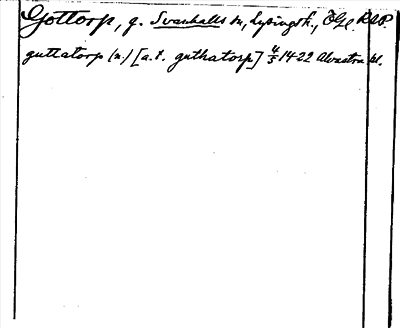 Gottorp, g. Svanhalls sn, Lysings h., ÖGl, RAP.
guttatorp (n.) [a.t. guthatorp] 4/5 1422 Alvastra kl.